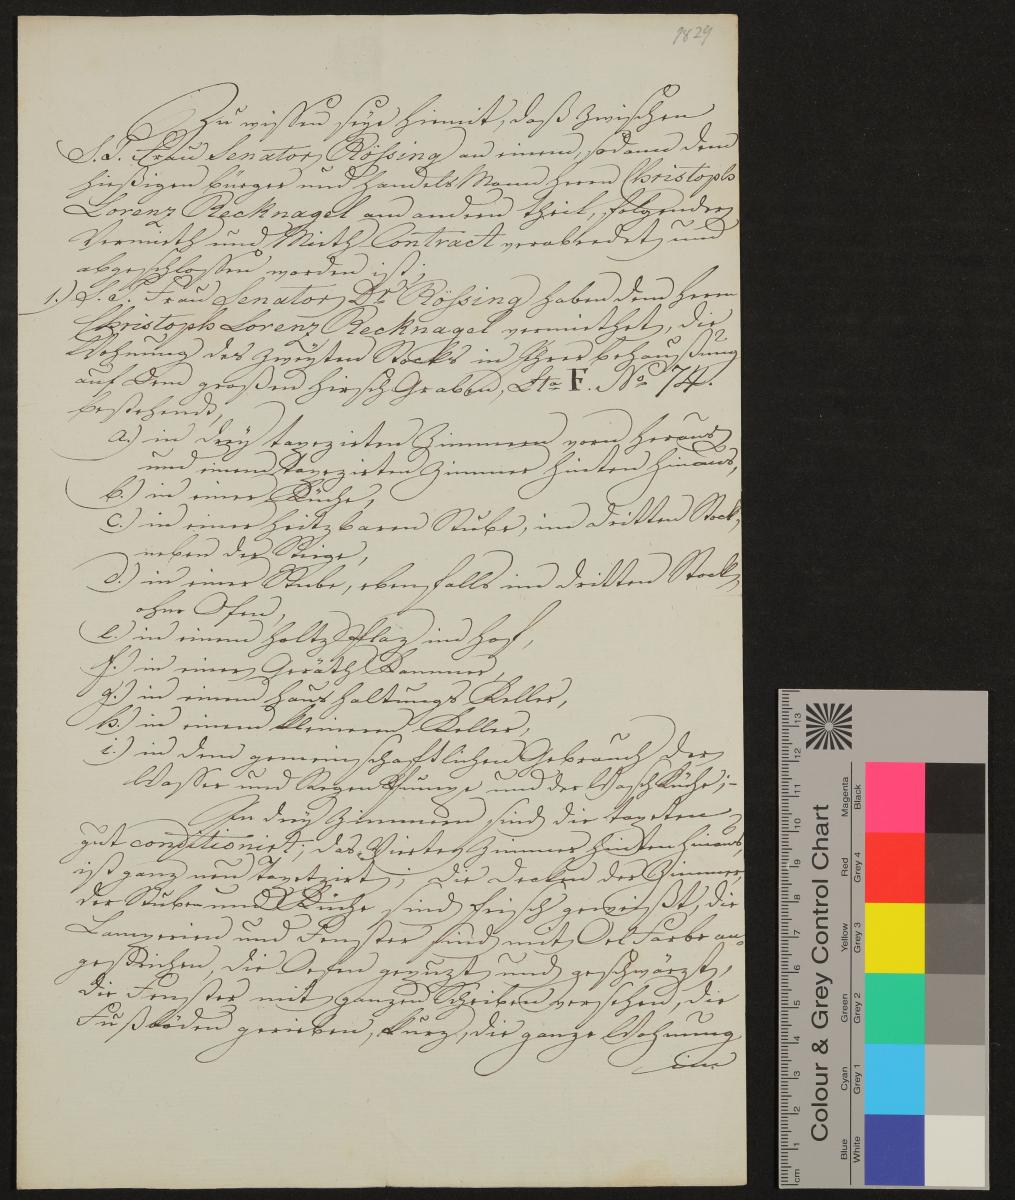 9829
Zu wissen seye hiermit, daß zwischen
S. T. Frau Senator Rößing an einem, sodann dem
hiesigen Bürger und Handels Mann Herrn Christoph
Lorenz Recknagel am andern Theil, folgender
Vermieth und Mieth Contract verabredet und
abgeschlossen worden ist;
1.) S. T. Frau Senator Dr. Rößing haben dem Herrn
Christoph Lorenz Recknagel vermiethet, die
Wohnung des zweyten Stocks in Ihrer Behaußung
auf dem großen Hirsch Graben, Lta F. No 74.
bestehend,
a.) in drey tapezirten Zimmern vorn heraus
und einem tapezirten Zimmer hinten hinaus,
b.) in einer Küche,
c.) in einer heitzbaren Stube, im dritten Stock,
neben der Stiege,
d.) in einer Stube, ebenfalls im dritten Stock,
ohne Ofen,
e.) in einem Holtz Plaz im Hof,
f.) in einer Geräth Kammer,
g.) in einem Haushaltungs Keller,
h.) in einem kleineren Keller,
i.) in dem gemeinschaftlichen Gebrauch der
Wasser und Regen Pumpe und der Waschküche;-
In drey Zimmern sind die Tapeten
gut conditionirt; das Vierte Zimmer hinten hinaus,
ist ganz neu tapetzirt; die Decken der Zimmer,
der Stuben und Küche sind frisch geweißt, die
Lamperien und Fenster sind mit Oel Farbe an-
gestrichen, die Oefen geputzt und geschwärzt,
die Fenster mit ganzen Scheiben versehen, die
Fußböden gerieben, kurz, die ganze Wohnung
im
cm 1 2 3 4 5 6 7 8 9 10 11 12 13
Colour & Grey Control Chart
Blue Cyan Green Yellow Red Magenta
White Grey 1 Grey 2 Grey 3 Grey 4 Black